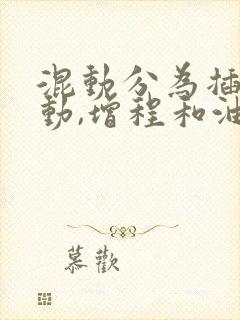 混動分為插
動,增程和油
慕歡